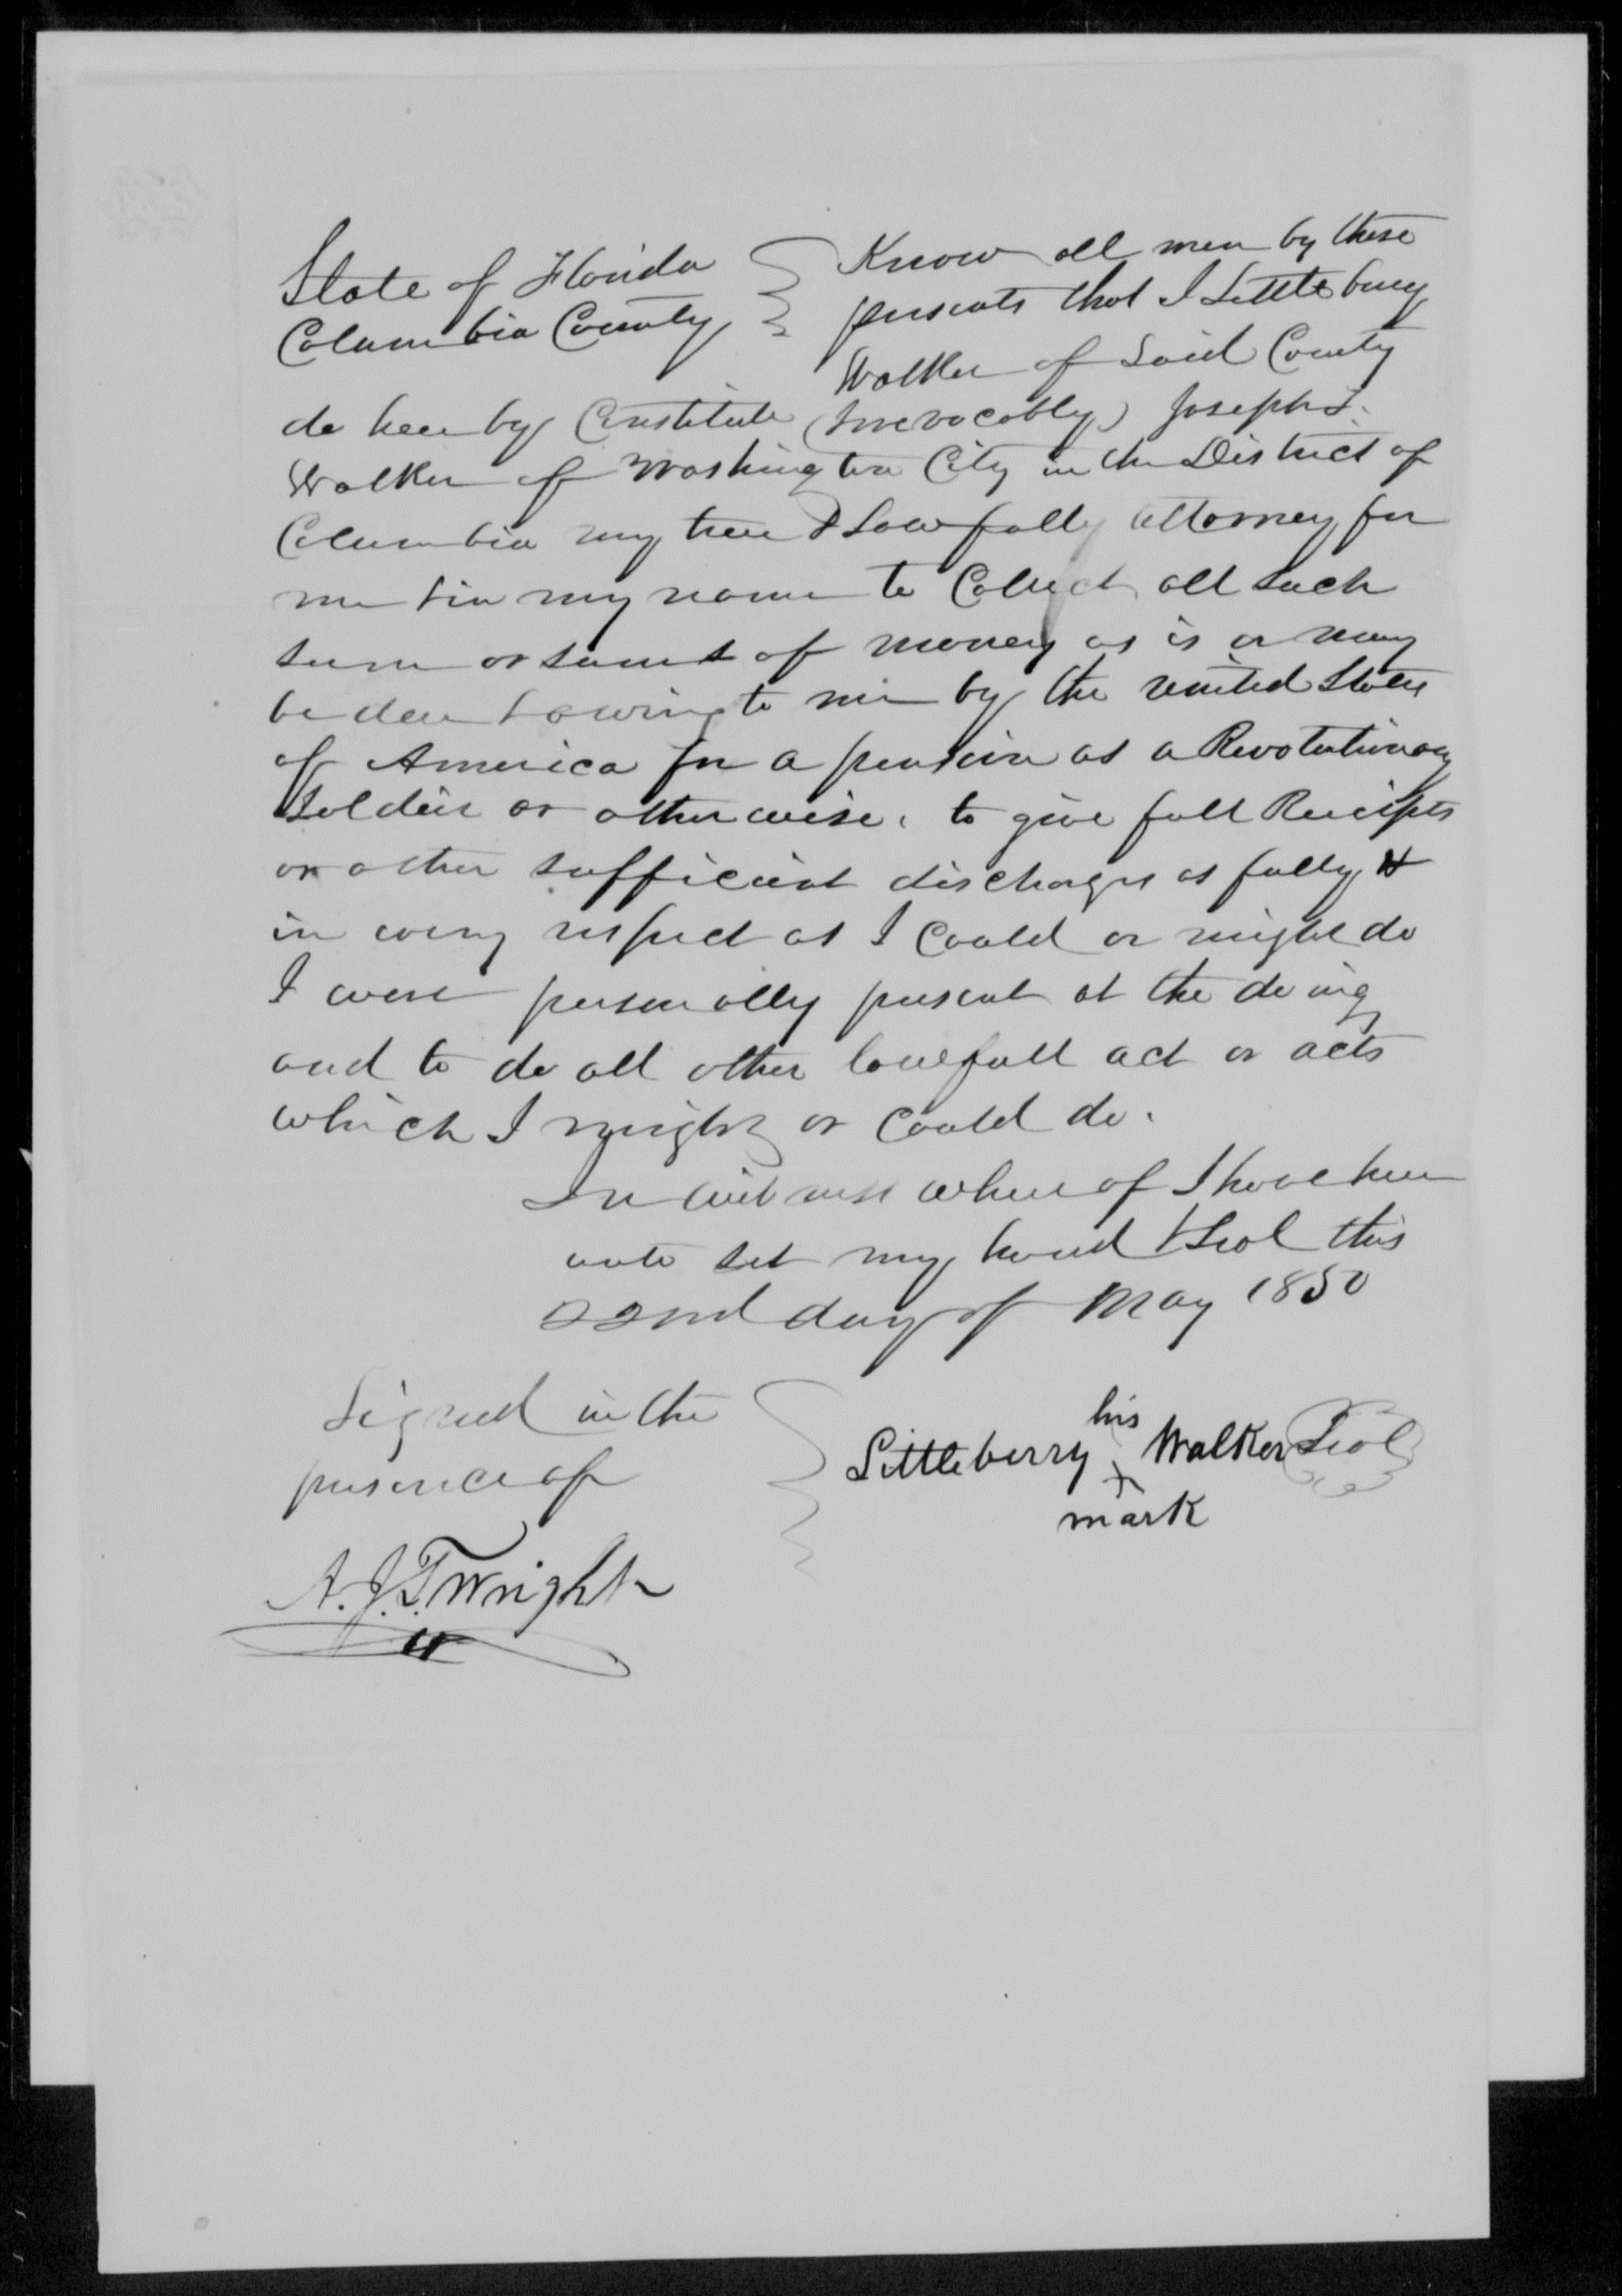 State of Florida
Columbia County
Know all men by these
presents that I Littlebury
Walker of Said County
do here by Constitute (Irrevocably) Joseph
Walker of Washington City in the District of
Columbia my true & Lawfully attorney for
me & in my name to Collect all such
sum or sums of money as is or may
be due & owing to me by the united States
of America for a pension as a Revolutionary
Soldier or other wise, to give full Receipts
or other sufficient discharges as fully &
in every respect as I Could or might do
I were personally present at the doing
and to do all other lawfull act or acts
which I might or Could do.
In witness where of I have here
unto set my hand & Seal this
22nd day of May 1850
Signed in the
presence of
his
Littleberry x Walker Seal
mark
A. J. T. Wright